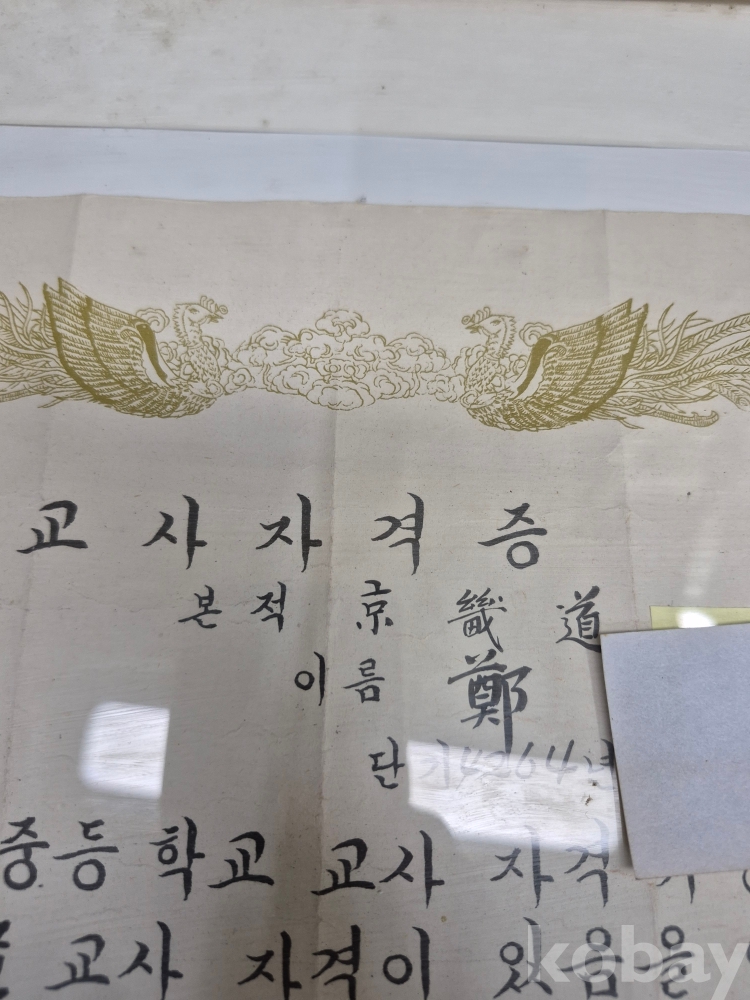 교사자격증
본적 京畿道
이름 鄭
단기4264년
중등학교 교사 자격
교사 자격이 있음을
kobay